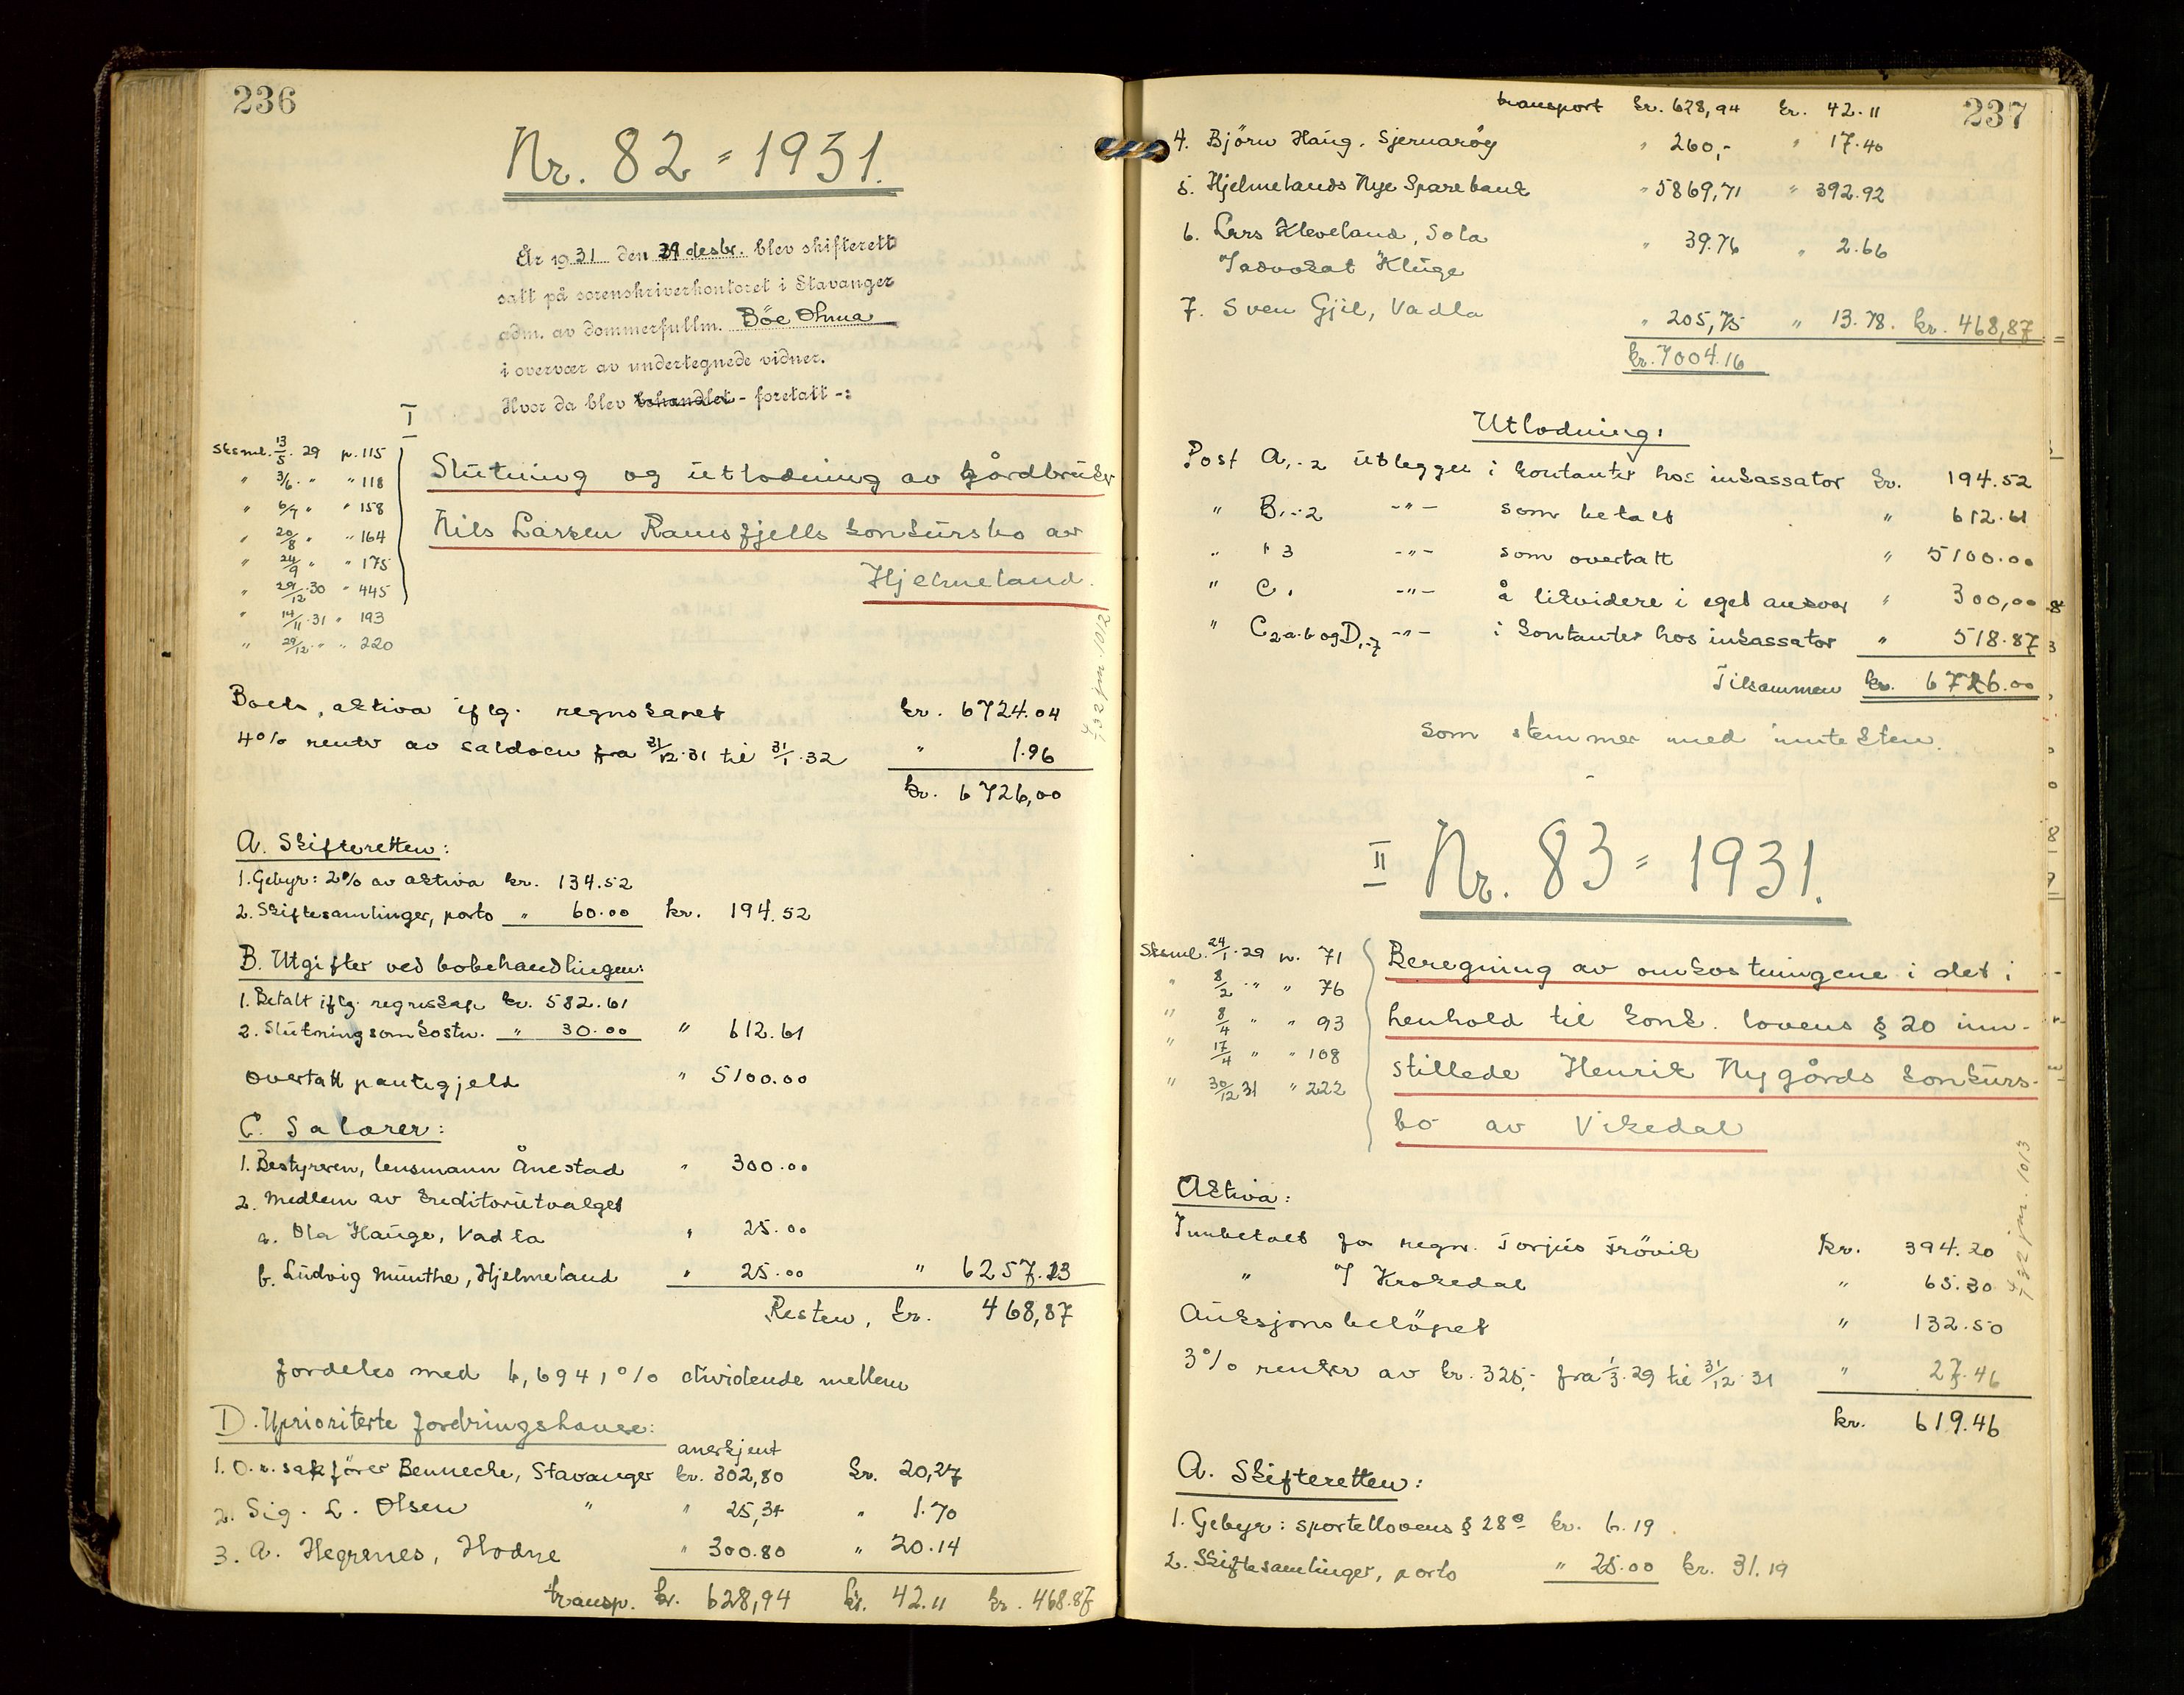 236
Nr. 82 = 1931.
År 1931 den 29 desbr. blev skifterett
satt på sorenskriverkontoret i Stavanger
adm. av dommerfullm. Böe
i overvær av undertegnede vidner.
Hvor da blev behandlet - foretatt -:
I
Sksml. 13/5. 29 p. 115
" 3/6. " " 118
" 6/7 " " 158
" 20/8 " " 164
" 24/9 " " 175
" 29/12.30 " 445
" 14/11.31 " 193
" 29/12 " " 220
Slutning og utlodning av gårdbruker
Nils Larsen Ramsfjells konkursbo av
Hjelmeland.
Boets aktiva iflg. regnskapet kr. 6724.04
4% renter av saldoen fra 31/12.31 til 31/1.32 " 1.96
kr. 6726,00
A. Skifteretten:
1. Gebyr: 2% av aktiva kr. 134.52
2. Skiftesamlinger, porto " 60.00 kr. 194.52
B. Utgifter ved bobehandlingen:
1. Betalt iflg. regnskap kr. 582.61
2. Slutningsomkostn. " 30.00 " 612.61
overtatt pantegjeld " 5100.00
C. Salærer:
1. Bestyreren, lensmann Ånestad " 300.00
2. Medlem av kreditorutvalget
a. Ola Hauge, Vadla " 25.00
b. Ludvig Munthe, Hjelmeland " 25.00 " 6257.13
Resten, kr. 468,87
fordeles med 6,6941% dividende mellem
D. Uprioriterte fordringshavere:
anerkjent
1. O.r.sakfører Benneche, Stavanger kr. 302,80 kr. 20,27
2. Sig. L. Olsen " " 25,34 " 1.70
3. A. Hegrenes, Hodne " 300.80 " 20.14
transp. kr. 628,94 kr. 42.11 kr. 468.87
237
transport kr. 628,94 kr. 42.11
4. Björn Haug, Sjernaröy " 260,- " 17.40
5. Hjelmelands Nye Sparebank " 5869,71 " 392.92
6. Lars Kleveland, Sola " 39.76 " 2.66
T/advokat Kluge
7. Sven Gjil, Vadla " 205,75 " 13.78. kr. 468,87
kr. 7004.16
Utlodning:
Post A1-2 utlegges i kontanter hos inkassator kr. 194.52
" B1-2 -"- som betalt " 612.61
" " 3 -"- som overtatt " 5100.00
" C1 -"- å likvidere i eget ansvar " 300,00
" C2a-b og D1-7 -"- i kontanter hos inkassator " 518.87
Tilsammen kr. 6726.00
som stemmer med inntekten.
II Nr. 83 = 1931.
Sksml. 24/1.29 p. 71
" 8/2. " " 76
" 8/4 " " 93
" 17/4 " " 108
" 30/12 31 " 222
Beregning av omkostningene i det i
henhold til konk. lovens § 20 inn-
stillede Henrik Nygårds konkurs-
bo av Vikedal
Aktiva:
Innbetalt fra regn. Torjus Frövik kr. 394.20
" T Krokedal " 65.30
Auksjonsbelöpet " 132.50
3% renter av kr. 325,- fra 1/3.29 til 31/12.31 " 27.46
kr. 619.46
A. Skifteretten:
1. Gebyr: sportellovens § 28 e kr. 6.19
2. Skiftesamlinger, porto " 25.00 kr. 31.19